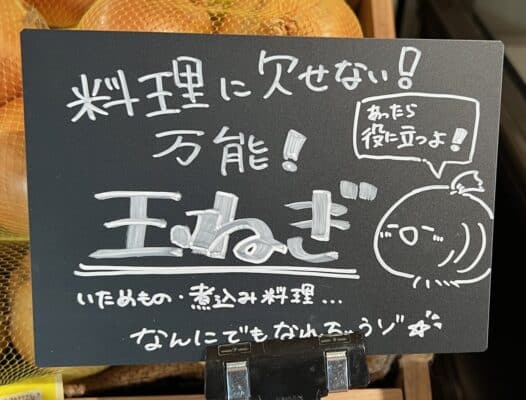 料理に欠せない!
万能!
玉ねぎ
あったら
役に立つよ!
いためもの・煮込み料理...
なんにでもなれちゃうゾ☆